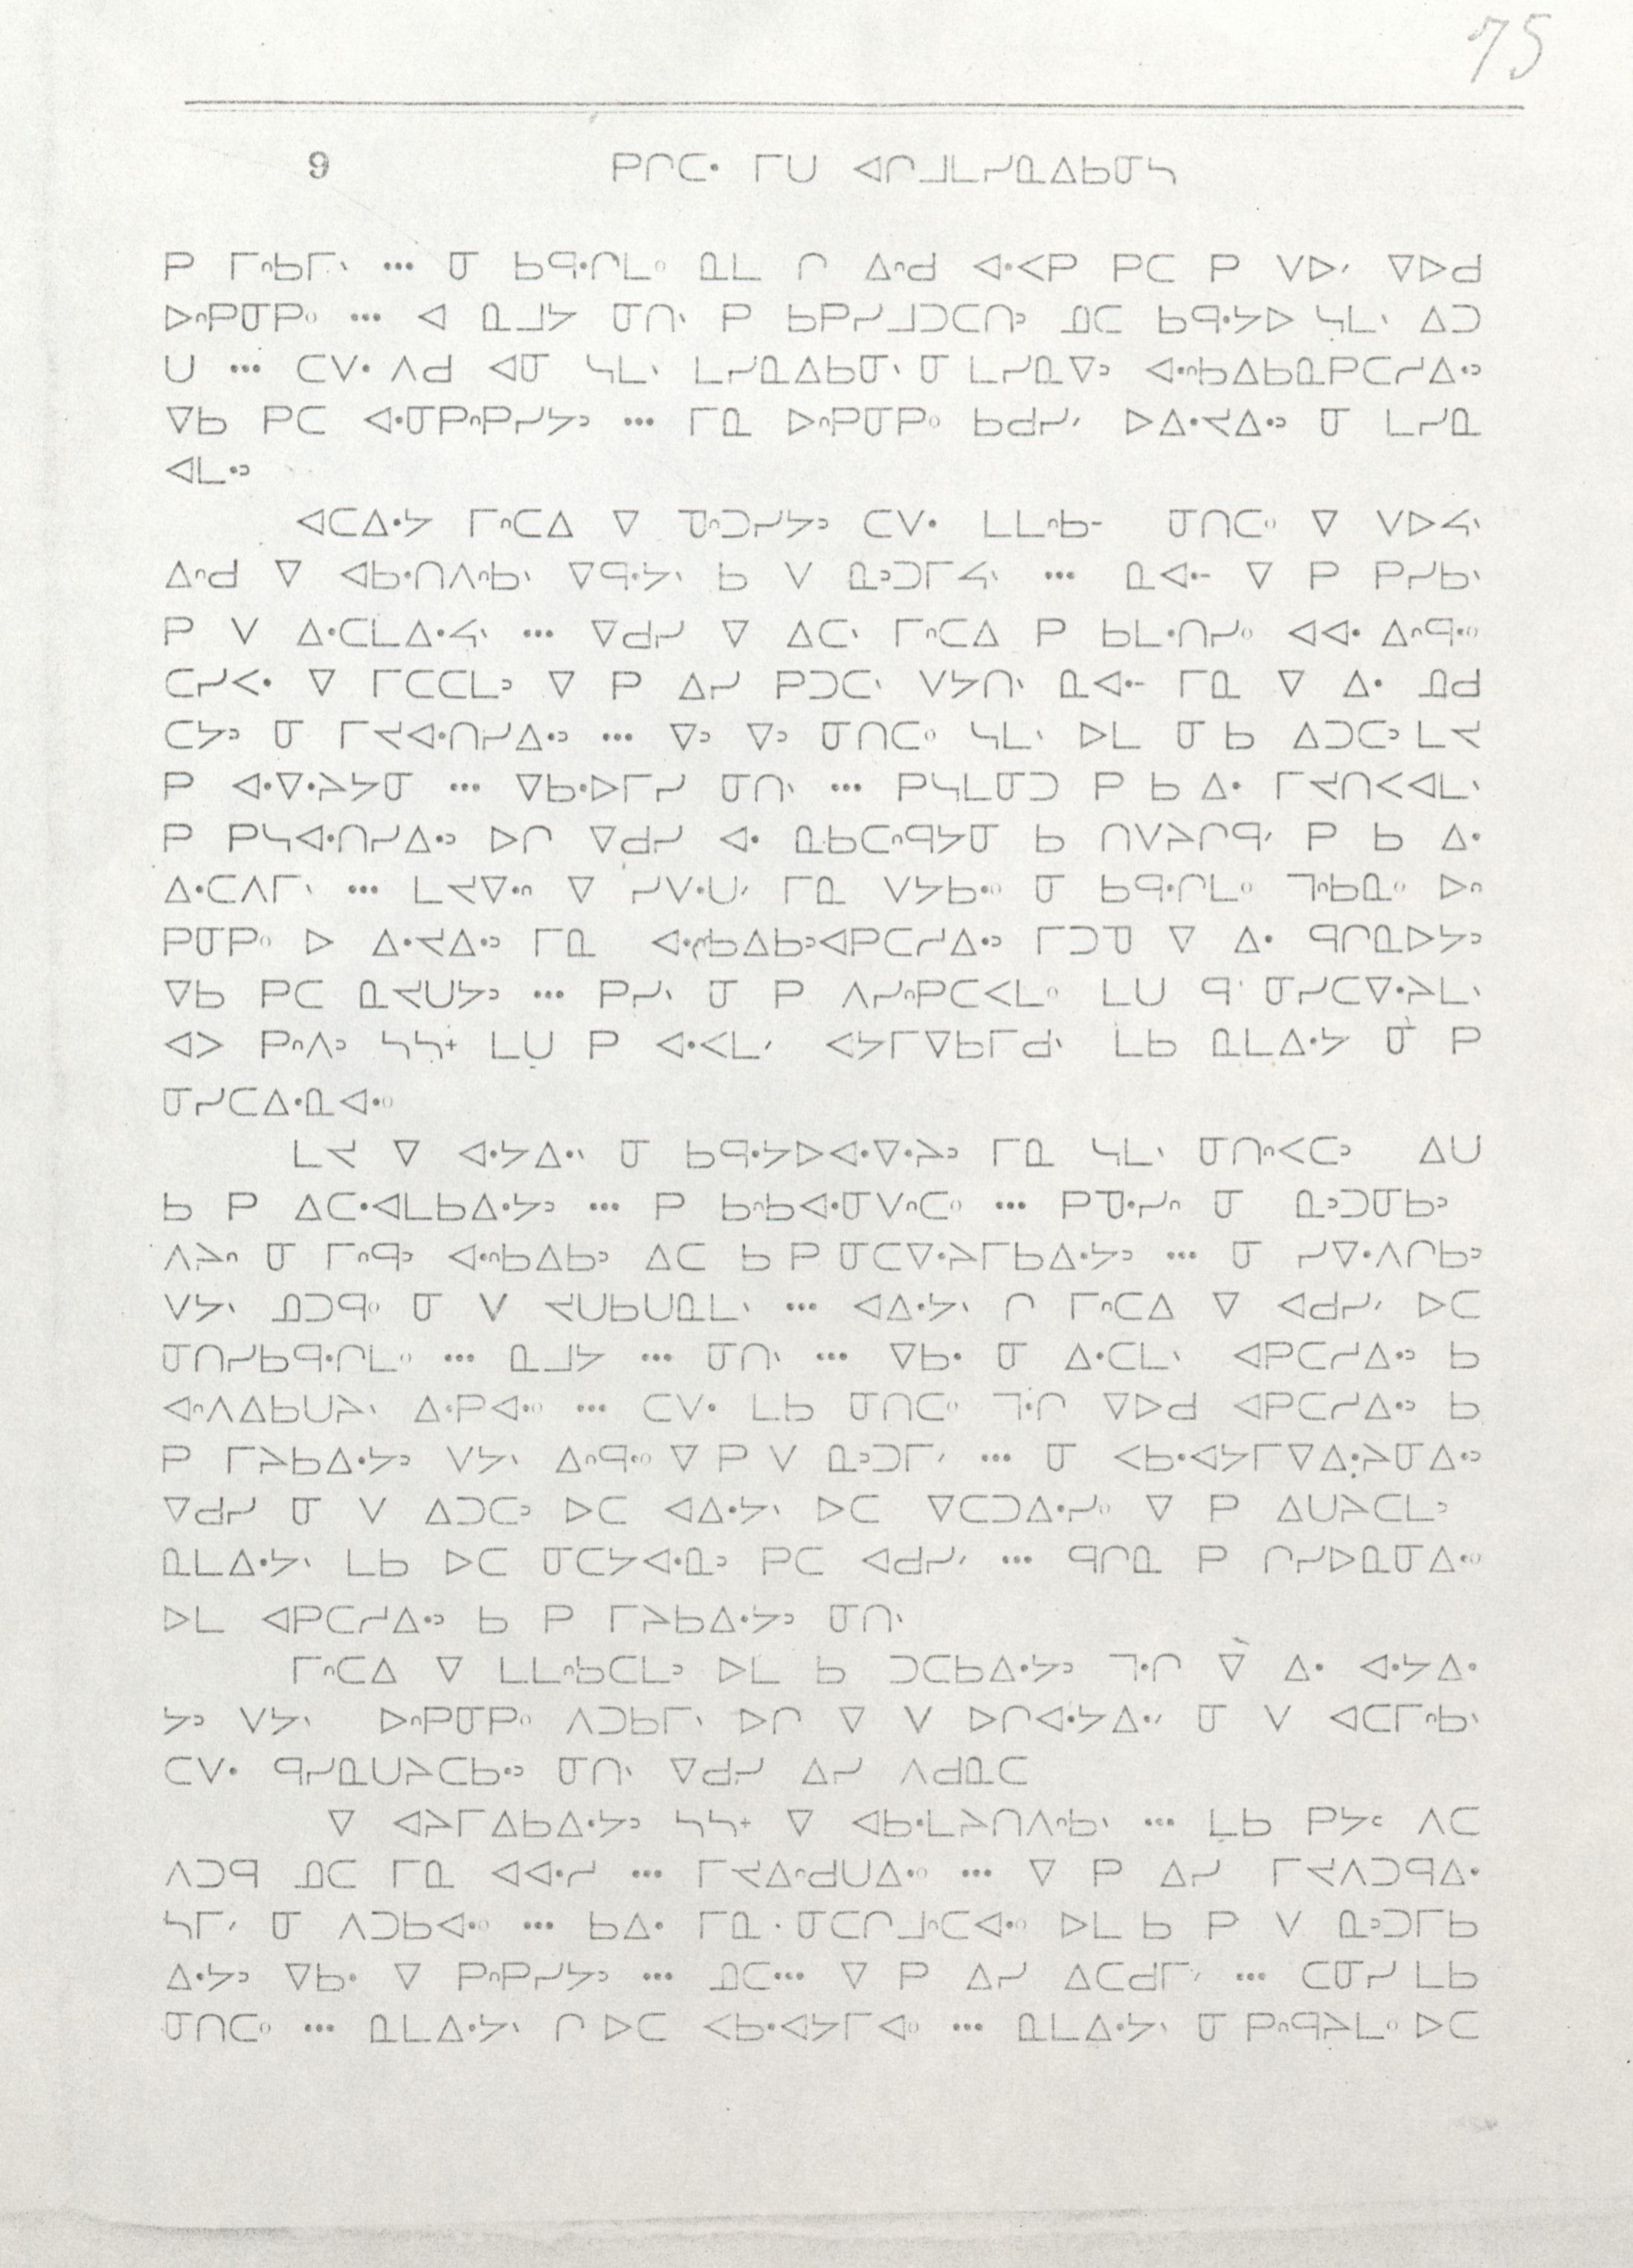 75
9 ᑭᒋᑕᐧ ᒥᑌ ᐊᒋᒧᒪᓯᓇᐃᑲᓂᓴ
ᑭ ᒥᐢᑲᒥᐠ ... ᓂ ᑲᑫᐧᒋᒪᐤ ᓇᒪ ᒋ ᐃᐢᑯ ᐊᐧᐸᑭ ᑭᑕ ᑭ ᐯᐅᐟ ᐁᐅᑯ
ᐅᐢᑭᓂᑭᐤ ... ᐊ ᓇᒧᔭ ᓂᑎᐠ ᑭ ᑲᑭᓯᒧᑐᑕᑎᐣ ᓄᑕ ᑲᑫᐧᔭᐅ ᓴᒪᐠ ᐃᑐ
ᑌ ... ᑕᐯᐧ ᐱᑯ ᐊᓂ ᓴᒪᐠ ᒪᓯᓇᐃᑲᓂᐠ ᓂ ᒪᓯᓇᐁᐣ ᐊᐧᐢᑲᐃᑲᓇᑭᑕᓱᐃᐧᐣ
ᐁᑲ ᑭᑕ ᐊᐧᓂᑭᐢᑭᓯᔭᐣ ... ᒥᓇ ᐅᐢᑭᓂᑭᐤ ᑲᑯᓯᐟ ᐅᐃᐧᔪᐃᐧᐣ ᓂ ᒪᓯᓇ
ᐊᒪᐧᐣ
ᐊᑕᐃᐧᔭ ᒥᐢᑕᐃ ᐁ ᓀᐢᑐᓯᔭᐣ ᑕᐯᐧ ᒪᒪᐢᑲᐨ ᓂᑎᑕᐤ ᐁ ᐯᐅᔭᐠ
ᐃᐢᑯ ᐁ ᐊᑲᐧᑎᐱᐢᑲᐠ ᐁᑫᐧᔭᐠ ᑲ ᐯ ᓇᐣᑐᒥᔭᐠ ... ᓇᐊᐧᐨ ᐁ ᑭ ᑭᓯᑲᐠ
ᑭ ᐯ ᐃᐧᑕᒪᐃᐧᔭᐠ ... ᐁᑯᓯ ᐁ ᐃᑕᐠ ᒥᐢᑕᐃ ᑭ ᑲᒪᐧᑎᓯᐤ ᐊᐊᐧ ᐃᐢᑫᐧᐤ
ᑕᓯᐸᐧ ᐁ ᒥᑕᑕᒪᐣ ᐁ ᑭ ᐃᓯ ᑭᑐᑕᐠ ᐯᔭᑎᐠ ᓇᐊᐧᐨ ᒥᓇ ᐁ ᐃᐧ ᓄᑯ
ᑕᔭᐣ ᓂ ᒥᔪᐊᐧᑎᓯᐃᐧᐣ ... ᐁᐣ ᐁᐣ ᓂᑎᑕᐤ ᓴᒪᐠ ᐅᒪ ᓂ ᑲ ᐃᑐᑕᐣ ᒪᔪ
ᑭ ᐊᐧᐁᐧᔨᔭᓂ ... ᐁᑲᐧᐅᒥᓯ ᓂᑎᐠ ... ᑭᓴᒪᓂᑐ ᑭ ᑲ ᐃᐧ ᒥᔪᑎᐸᐊᒪᐠ
ᑭ ᑭᓴᐊᐧᑎᓯᐃᐧᐣ ᐅᒋ ᐁᑯᓯ ᐊᐧ ᓇᑲᑕᐢᑫᔭᓂ ᑲ ᑎᐯᔨᒋᑫᐟ ᑭ ᑲ ᐃᐧ
ᐃᐧᑕᐱᒥᐠ ... ᒪᔪᐁᐧᐢ ᐁ ᓯᐯᐧᑌᐟ ᒥᓇ ᐯᔭᑲᐧᐤ ᓂ ᑲᑫᐧᒋᒪᐤ ᒣᐢᑲᓇᐤ ᐅᐢ
ᑭᓂᑭᐤ ᐅ ᐃᐧᔪᐃᐧᐣ ᒥᓇ ᐊᐧᐢᑲᐃᑲᐣᐊᑭᑕᓱᐃᐧᐣ ᒥᑐᓀ ᐁ ᐃᐧ ᑫᒋᓇᐅᔭᐣ
ᐁᑲ ᑭᑕ ᓇᔪᑌᔭᐣ ... ᑭᓯᐠ ᓂ ᑭ ᐱᓯᐢᑭᑕᐸᒪᐤ ᒪᑌ ᑫ ᓂᓯᑕᐁᐧᔨᒪᐠ
ᐊᐳ ᑭᐢᐱᐣ ᓴᓴᕀ ᒪᑌ ᑭ ᐊᐧᐸᒪᐟ ᐸᔭᒥᐁᑲᒥᑯᐠ ᒪᑲ ᓇᒪᐃᐧᔭ ᓂ ᑭ
ᓂᓯᑕᐃᐧᓇᐊᐧᐤ
ᒪᔪ ᐁ ᐊᐧᔭᐃᐧᐠ ᓂ ᑲᑫᐧᔭᐅᐊᐧᐁᐧᔨᐣ ᒥᓇ ᓴᒪᐠ ᓂᑎᐢᐸᑕᐣ ᐃᑌ
ᑲ ᑭ ᐃᑕᐧᐊᒪᑲᐃᐧᔭᐣ ... ᑭ ᑲᐢᑲᐊᐧᓂᐯᐢᑕᐤ ... ᑭᓀᐧᓯᐢ ᓂ ᓇᐣᑐᓂᑲᐣ
ᐱᔨᐢ ᓂ ᒥᐢᑫᐣ ᐊᐧᐢᑲᐃᑲᐣ ᐃᑕ ᑲ ᑭ ᓂᑕᐁᐧᔨᒥᑲᐃᐧᔭᐣ ... ᓂ ᓯᐁᐧᐱᒋᑲᐣ
ᐯᔭᐠ ᓄᑐᑫᐤ ᓂ ᐯ ᔪᑌᑲᑌᓇᒪᐠ ... ᐊᐃᐧᔭᐠ ᒋ ᒥᐢᑕᐃ ᐁ ᐊᑯᓯᐟ ᐅᑕ
ᓂᑎᓯᑲᑫᐧᒋᒪᐤ ... ᓇᒧᔭ ... ᓂᑎᐠ ... ᐁᑲᐧ ᓂ ᐃᐧᑕᒪᐠ ᐊᑭᑕᓱᐃᐧᐣ ᑲ
ᐊᐧᐢᐱᐃᑲᑌᔨᐠ ᐃᐧᑭᐊᐧᐤ ... ᑕᐯᐧ ᒪᑲ ᓂᑎᑕᐤ ᒣᐧᒋ ᐁᐅᑯ ᐊᑭᑕᓱᐃᐧᐣ ᑲ
ᑭ ᒥᔨᑲᐃᐧᔭᐣ ᐯᔭᐠ ᐃᐢᑫᐧᐤ ᐁ ᑭ ᐯ ᓇᐣᑐᒥᐟ ... ᓂ ᐸᑲᐧᐊᔭᒥᐁᐃᐧᔨᓂᐃᐧᐣ
ᐁᑯᓯ ᓂ ᐯ ᐃᑐᑕᐣ ᐅᑕ ᐊᐃᐧᔭᐠ ᐅᑕ ᐁᑕᑐᐃᐧᓯᐤ ᐁ ᑭ ᐃᑌᔨᑕᒪᐣ
ᓇᒪᐃᐧᔭᐠ ᒪᑲ ᐅᑕ ᓂᑕᔭᐊᐧᓇᐣ ᑭᑕ ᐊᑯᓯᐟ ... ᑫᒋᓇ ᑭ ᒋᓯᐅᓇᓂᐃᐧᐤ
ᐅᒪ ᐊᑭᑕᓱᐃᐧᐣ ᑲ ᑭ ᒥᔨᑲᐃᐧᔭᐣ ᓂᑎᐠ
ᒥᐢᑕᐃ ᐁ ᒪᒪᐢᑲᑕᒪᐣ ᐅᒪ ᑲ ᑐᑕᑲᐃᐧᔭᐣ ᒣᐧᒋ ᐁ ᐃᐧ ᐊᐧᔭᐃᐧ
ᔭᐣ ᐯᔭᐠ ᐅᐢᑭᓂᑭᐤ ᐱᑐᑲᒥᐠ ᐅᒋ ᐁ ᐯ ᐅᒋᐊᐧᔭᐃᐧᐟ ᓂ ᐯ ᐊᑕᒥᐢᑲᐠ
ᑕᐯᐧ ᑫᓯᓇᑌᔨᑕᑲᐧᐣ ᓂᑎᐠ ᐁᑯᓯ ᐃᓯ ᐱᑯᓇᑕ
ᐁ ᐊᔨᒥᐃᑲᐃᐧᔭᐣ ᓴᓴᕀ ᐁ ᐊᑲᐧᒪᔨᑎᐱᐢᑲᐠ ... ᒪᑲ ᑭᔭᒼ ᐱᑕ
ᐱᑐᑫ ᓄᑕ ᒥᓇ ᐊᐊᐧᓱ ... ᒥᔪᐃᐢᑯᑌᐃᐧᐤ ... ᐁ ᑭ ᐃᓯ ᒥᔪᐱᑐᑫᐃᐧ
ᓴᒥᐟ ᓂ ᐱᑐᑲᐊᐧᐤ ... ᑲᐃᐧ ᒥᓇ ᓂᑕᒋᒧᐢᑕᐊᐧᐤ ᐅᒪ ᑲ ᑭ ᐯ ᓇᐣᑐᒥᑲ
ᐃᐧᔭᐣ ᐁᑲᐧ ᐁ ᑭᐢᑭᓯᔭᐣ ... ᓄᑕ... ᐁ ᑭ ᐃᓯ ᐃᑕᑯᒥᐟ ... ᑕᓂᓯ ᒪᑲ
ᓂᑎᑕᐤ ... ᓇᒪᐃᐧᔭᐠ ᒋ ᐅᑕ ᐸᑲᐧᐊᔭᒥᐊᐤ ... ᓇᒪᐃᐧᔭᐠ ᓂ ᑭᐢᑫᔨᒪᐤ ᐅᑕ